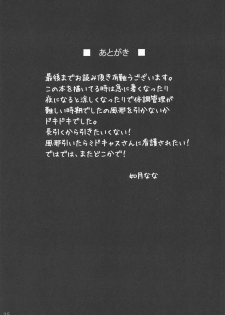 ■ あとがき ■
最後までお読み頂き有難うございます。
この本を描いてる時は急に暑くなったり
夜になると涼しくなったりで体調管理が
難しい時期でしたの風邪を引かないか
ドキドキでした。
長引くから引きたくない!
風邪引いたらミドキャスさんに看護されたい!
ではでは、またどこかで!
如月なな